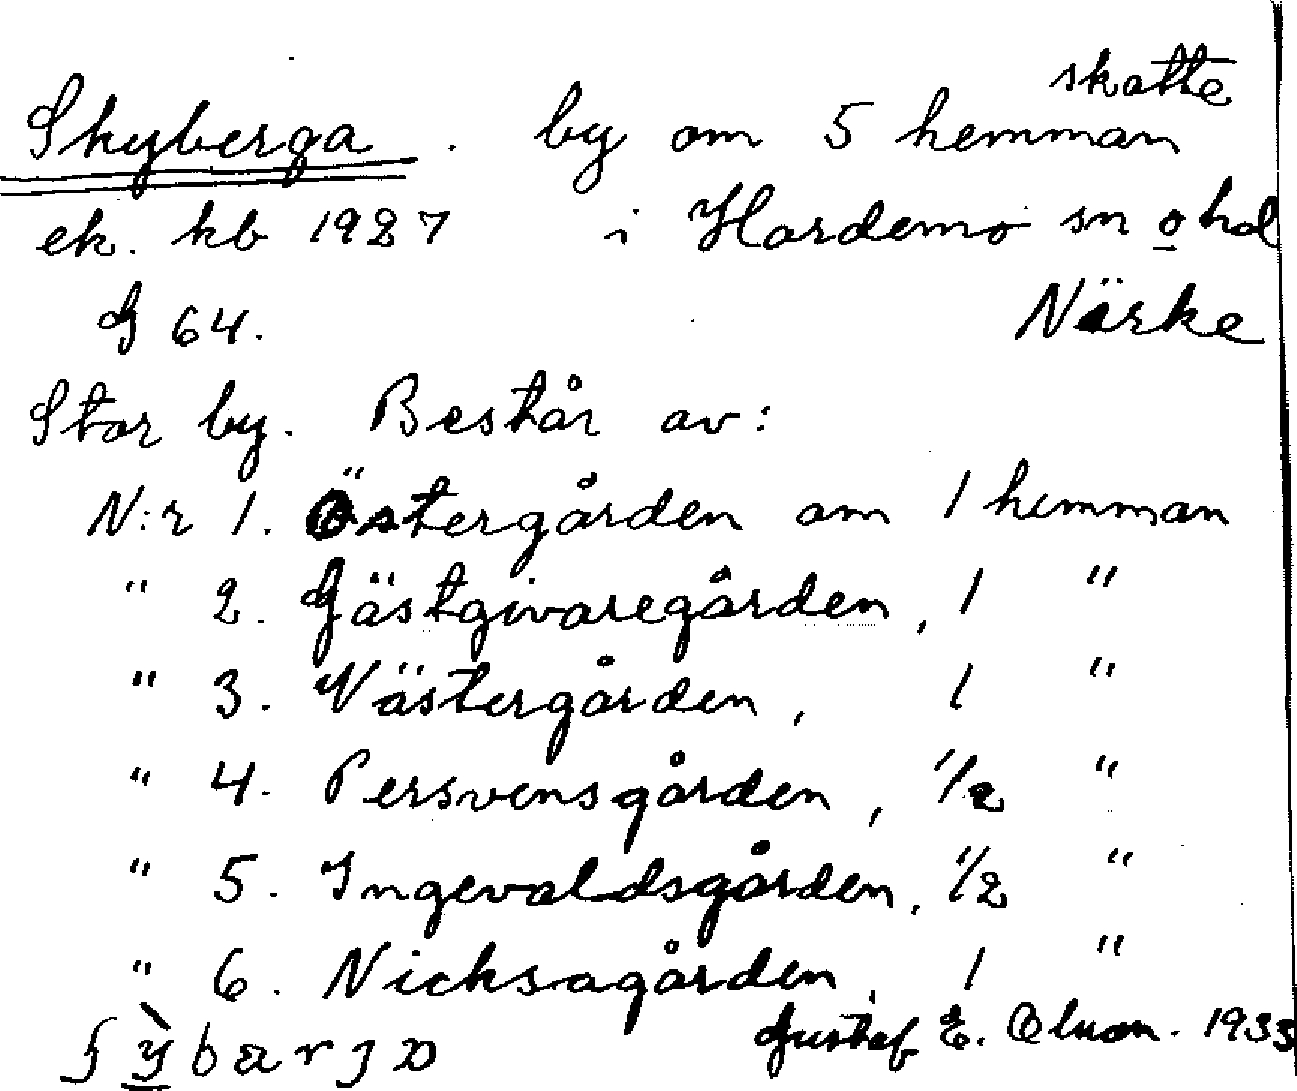 skatte
Skyberga. by om 5 hemman
ek. kb 1927 i Hardemo sn o hd
G 64. Närke
Stor by. Består av:
N:r 1. Östergården om 1 hemman
" 2. Gästgivaregården, 1 "
" 3. Västergården, 1 "
" 4. Persvensgården, 1/2 "
" 5. Ingevaldsgården, 1/2 "
" 6. Nicksagården, 1 "
Gustaf E. Olson. 1933